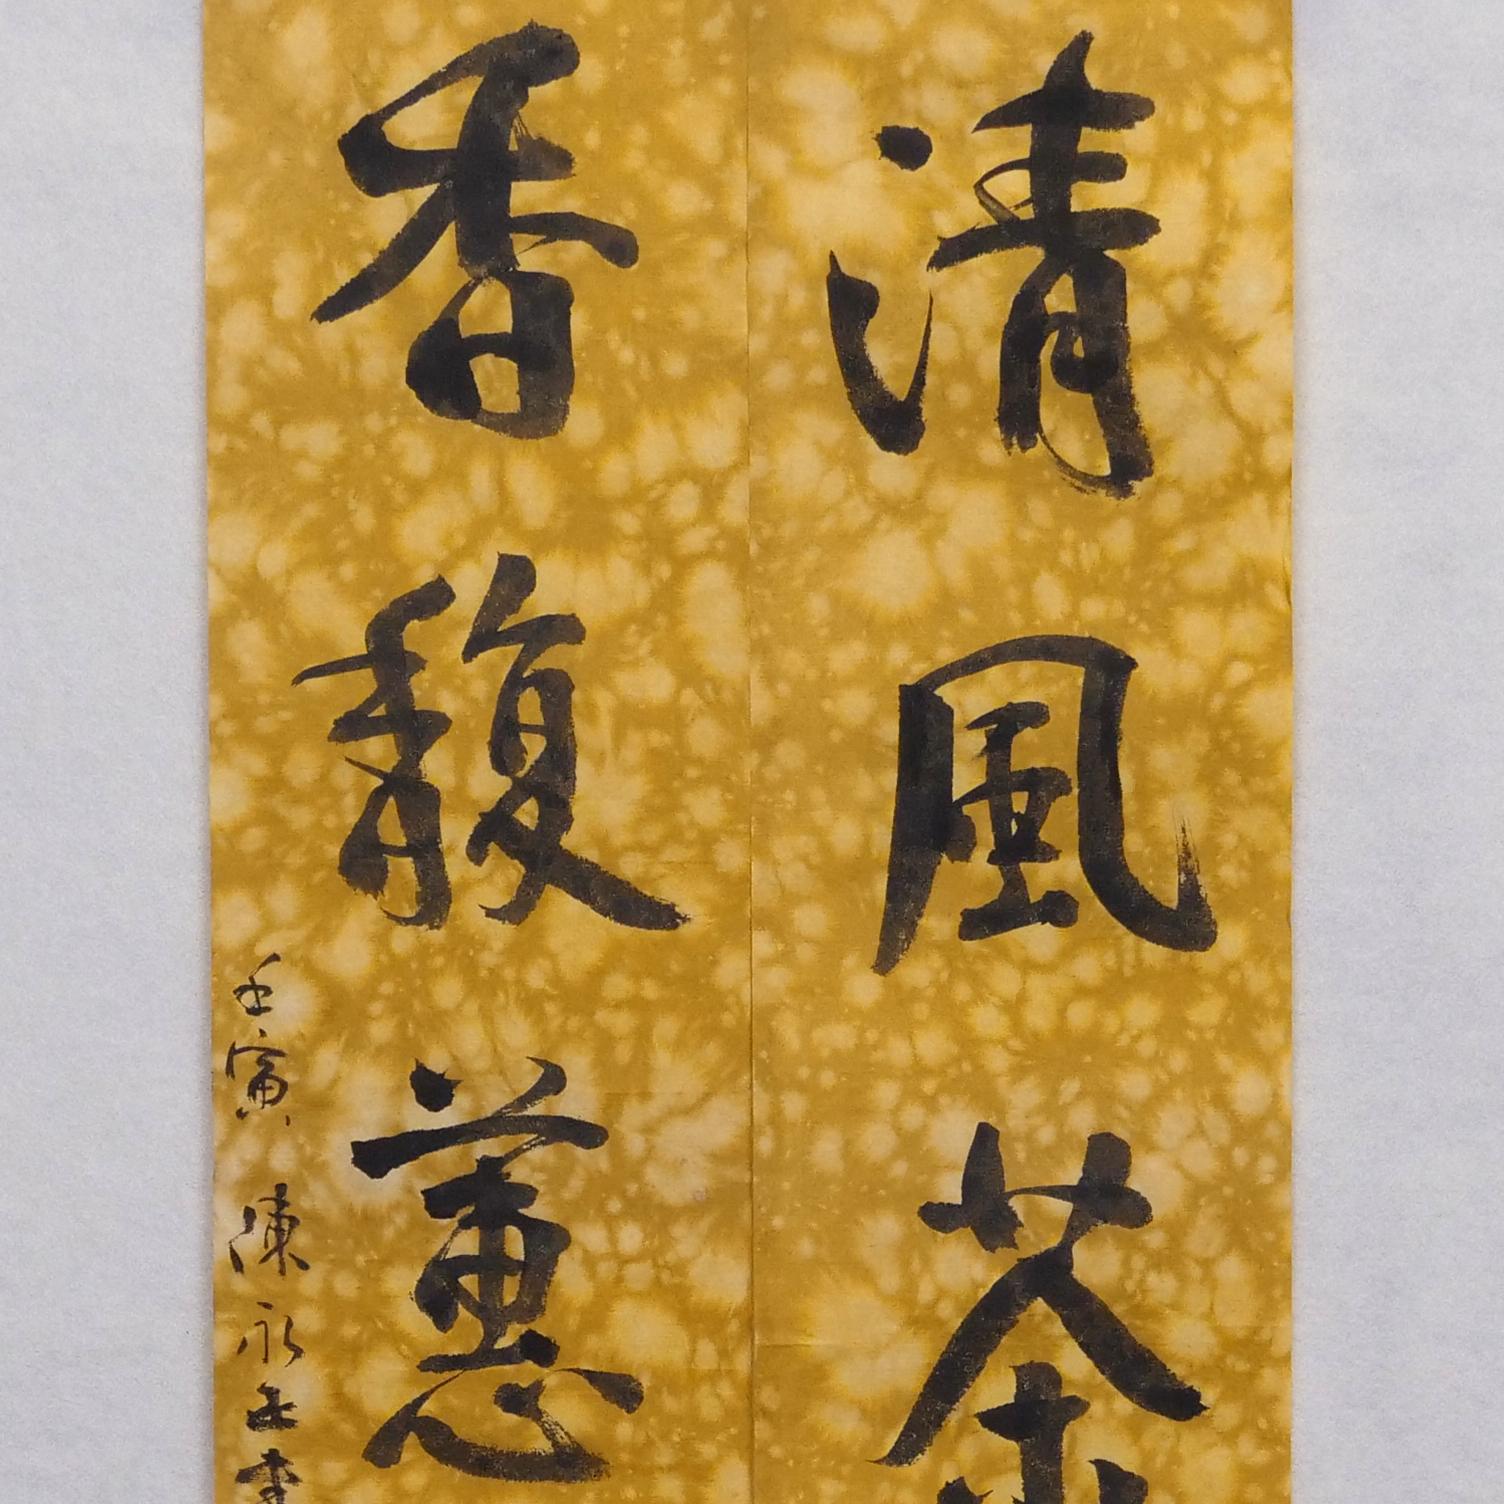 清風茶
香馥蕙
壬寅 陳永正書